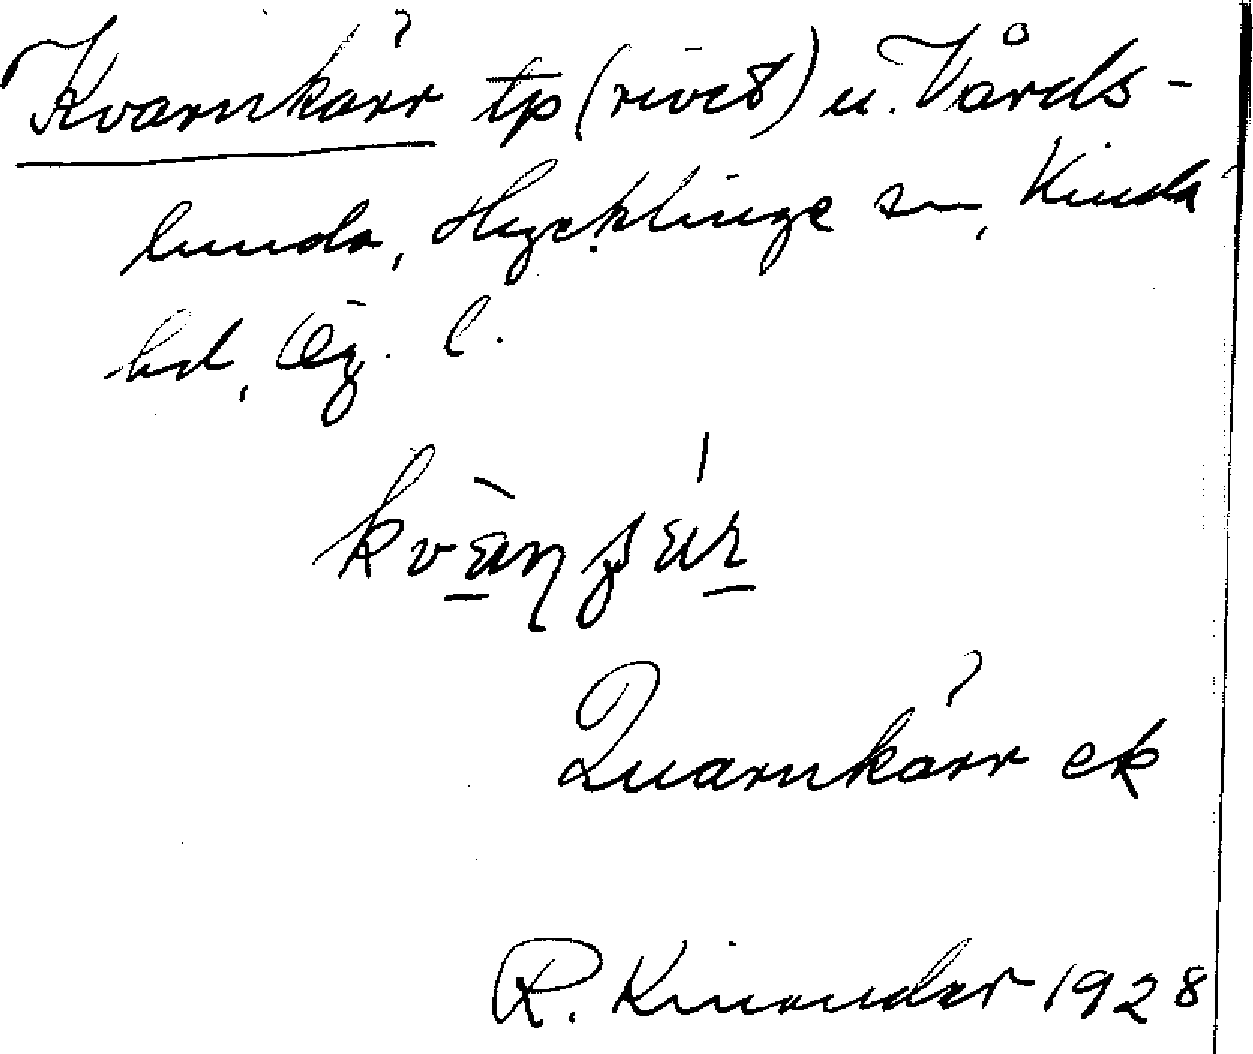 Kvarnkärr tp (rivet) u. Vårds-
lunda, Hycklinge sn, Kinda
hd, Ög. l.
Quarnkärr ek
R. Kinander 1928